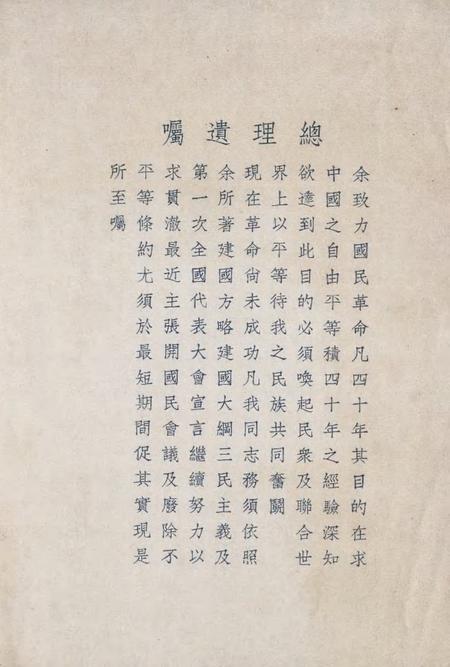 總理遺囑
余致力國民革命凡四十年其目的在求
中國之自由平等積四十年之經驗深知
欲達到此目的必須喚起民衆及聯合世
界上以平等待我之民族共同奮鬭
現在革命尙未成功凡我同志務須依照
余所著建國方略建國大綱三民主義及
第一次全國代表大會宣言繼續努力以
求貫澈最近主張開國民會議及廢除不
平等條約尤須於最短期間促其實現是
所至囑